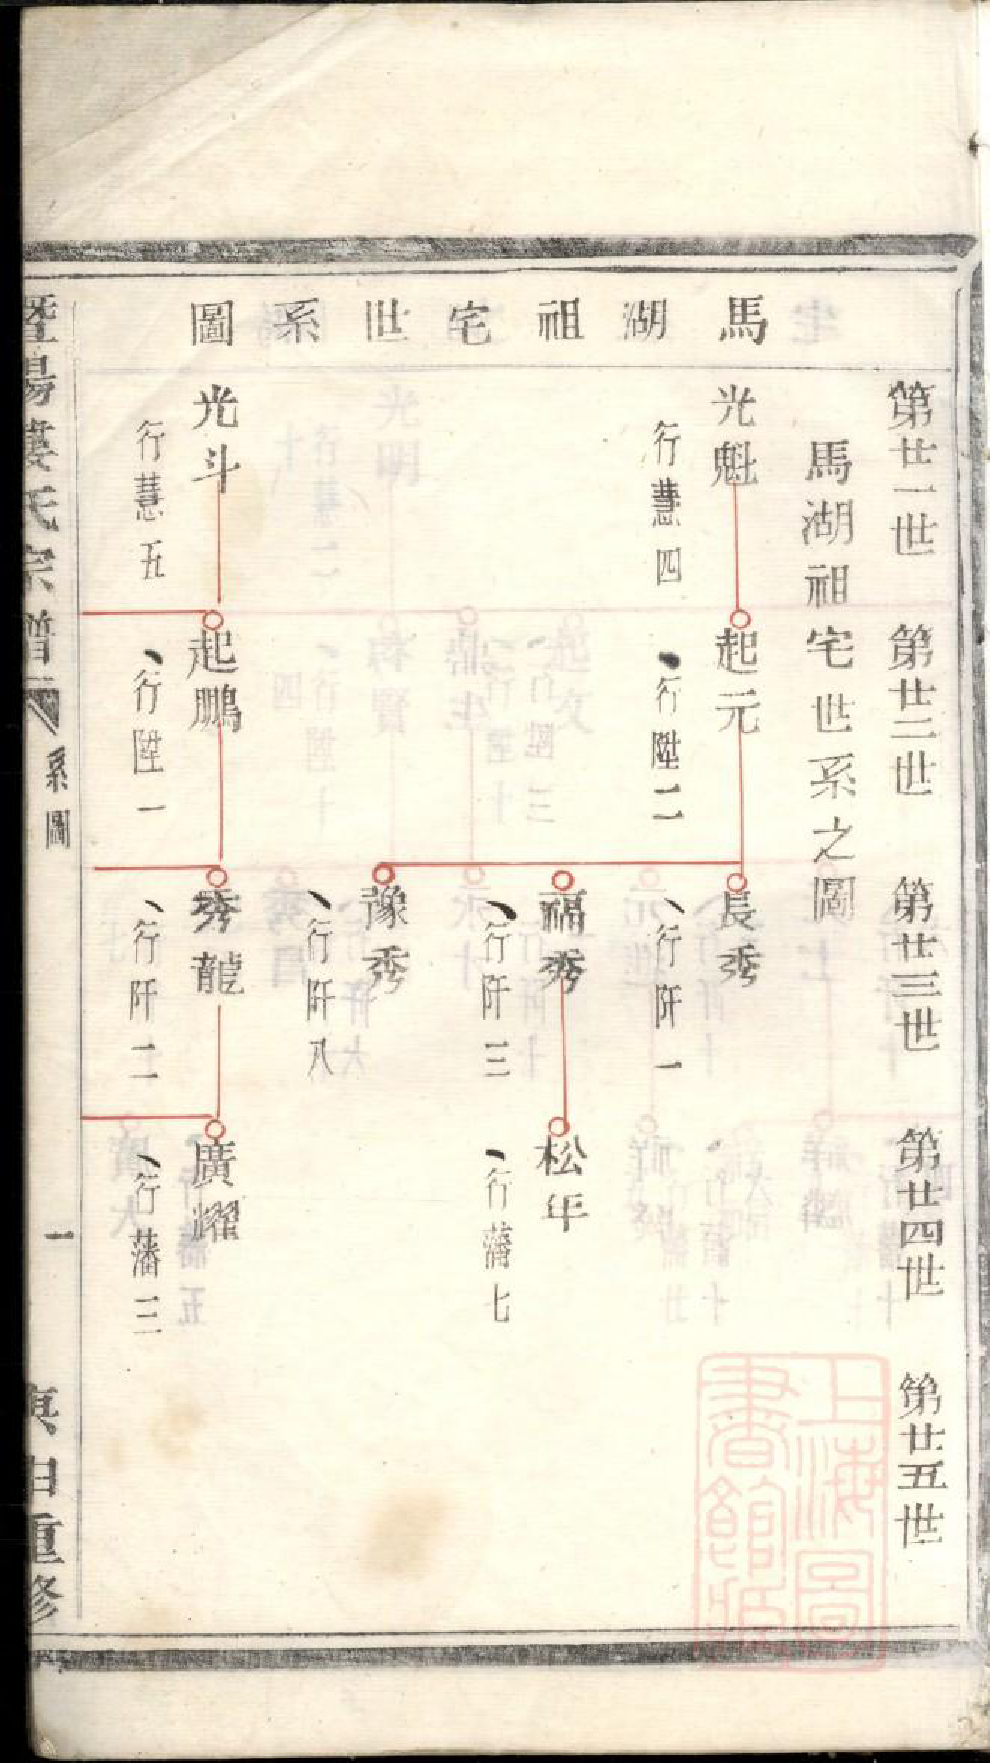 馬湖祖宅世系圖
第廿一世
第廿二世
第廿三世
第廿四世
第廿五世
馬湖祖宅世系之圖
光魁
行慧四
起元
行陞二
長秀
行阡一
福秀
行阡三
松年
行藩七
豫秀
行阡八
光斗
行慧五
起鵬
行陞一
秀龍
行阡二
廣耀
行藩三
暨陽婁氏宗譜
系圖
一
重修
上海圖
書館